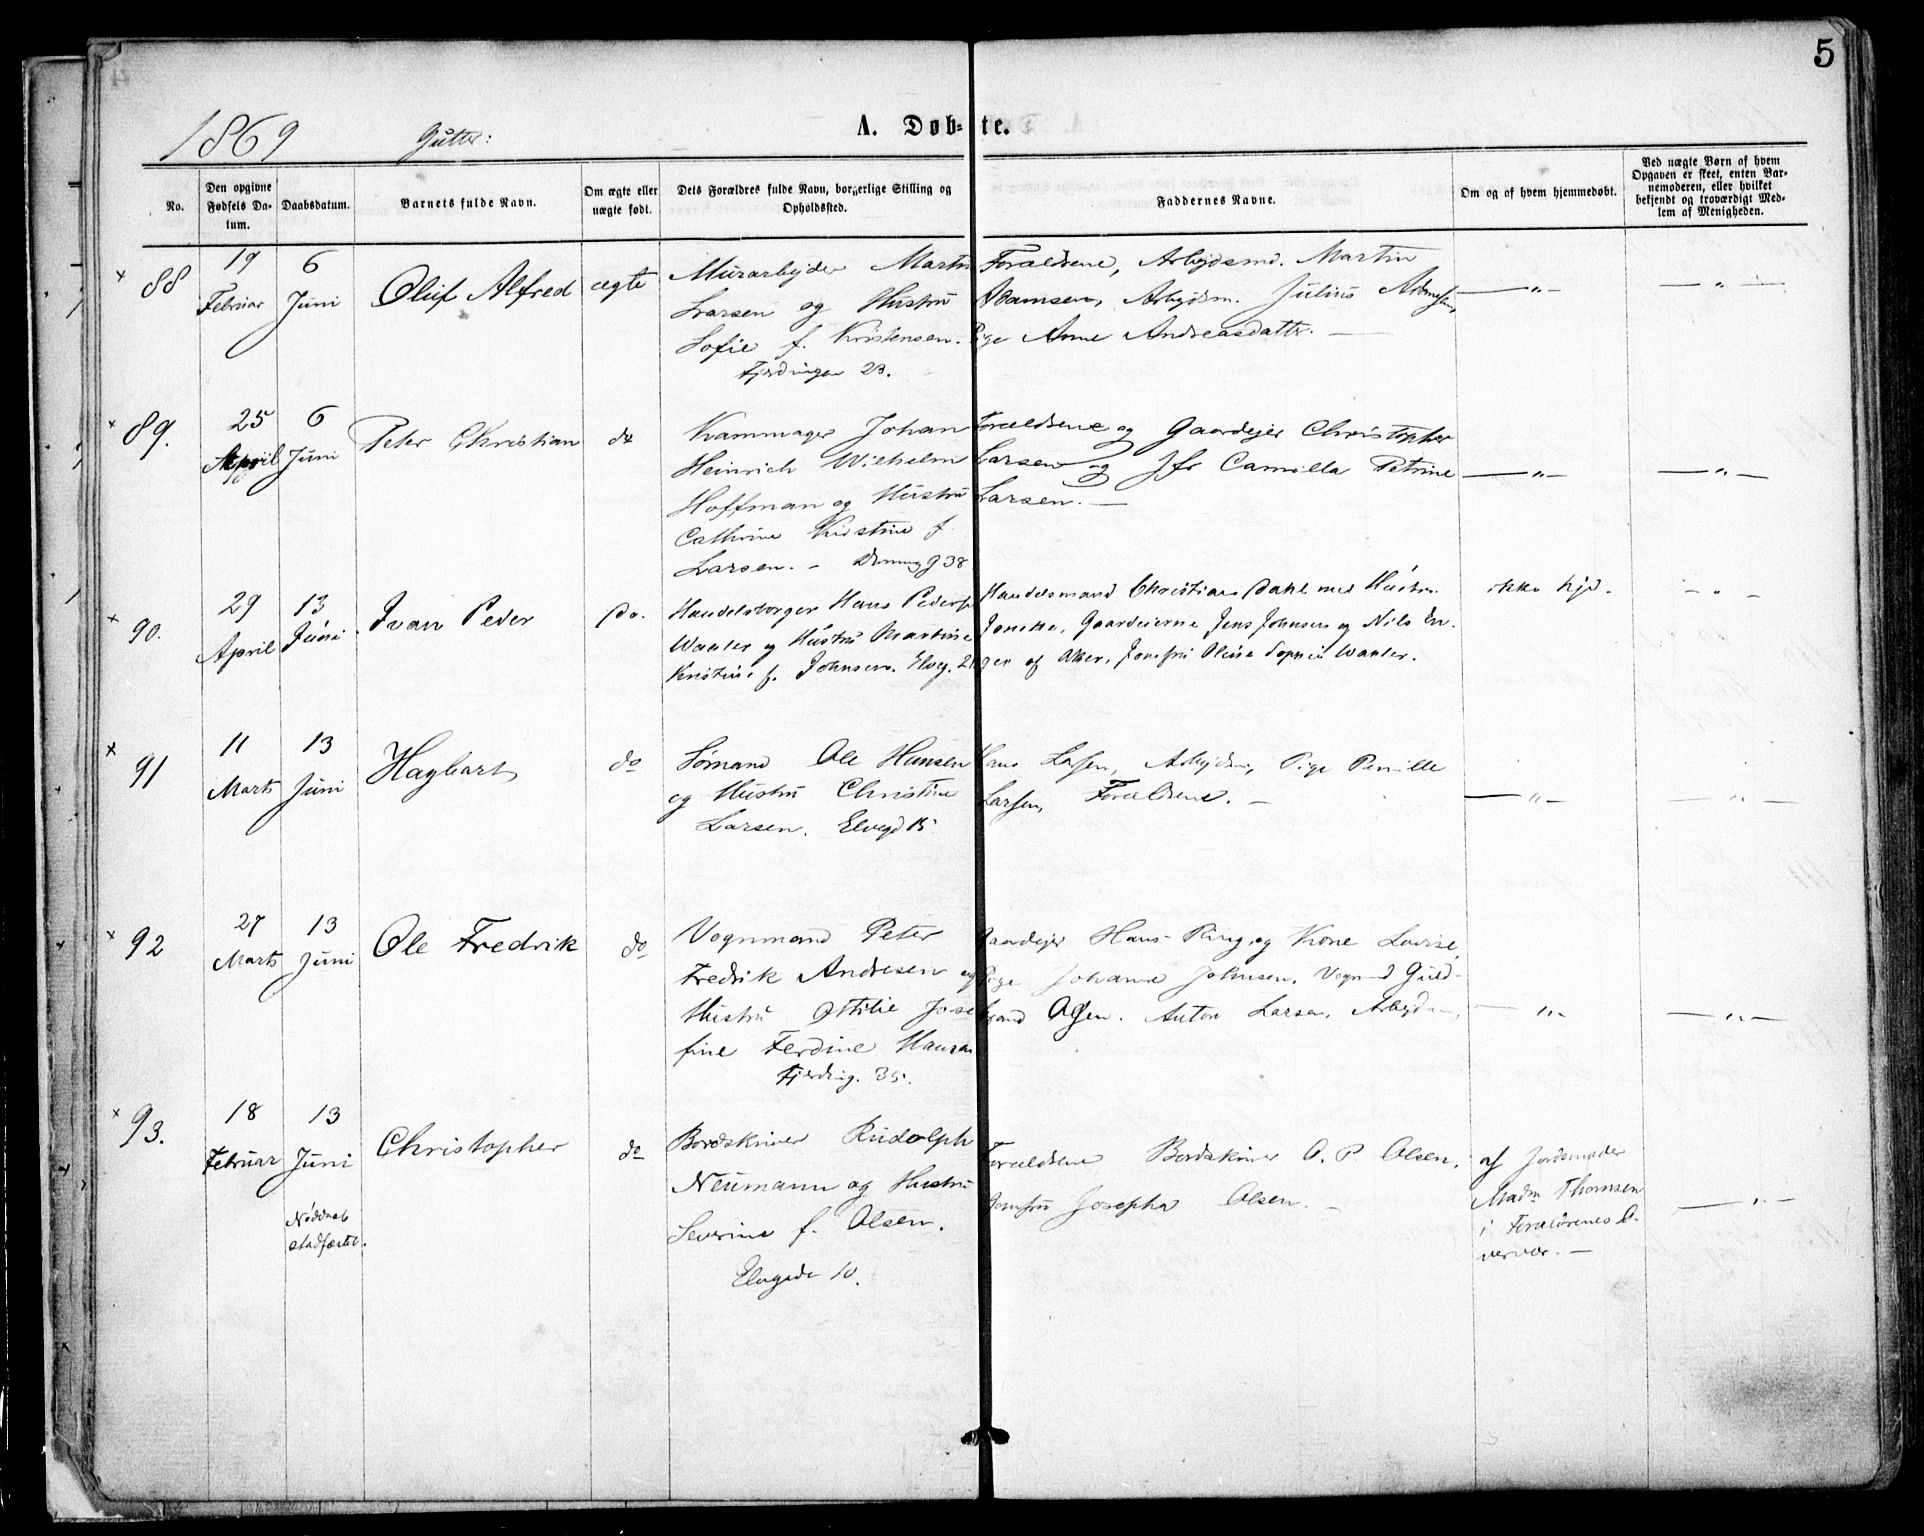 5
1869 Gutter:
A. Døb-te.
No.
Den opgivne
Fødsels Da-
tum.
Daabsdatum.
Barnets fulde Navn.
Om ægte eller
uægte født.
Dets Forældres fulde Navn, borgerlige Stilling og
Opholdssted.
Faddernes Navne.
Om og af hvem hjemmedøbt.
Ved uægte Børn af hvem
Opgaven er skeet, enten Bar-
nemoderen, eller hvilket
bekjendt og troværdigt Med-
lem af Menigheden.
× 88
19
Februar
6
Juni
Oluf Alfred
ægte
Murarbejder Martin
Larsen og Hustru
Sofie f. Kristensen.
Fjerdingen 23.
Forældrene, Arbejdsmd. Martin
Adamsen, Arbejdsm. Julius Adamsen,
Pige Anne Andreasdatter. —
— „ —
— „ —
× 89.
25
April
6
Juni
Peter Christian
do
Kammager Johan
Heinrich Wilhelm
Hoffman og Hustru
Cathrine Kirstine f.
Larsen. – 38
Forældrene og Gaardejer Christopher
Larsen og Jfr Camilla Petrine
Larsen. —
— „ —
— „ —
90.
29
April
13
Juni
Ivan Peder
do.
Handelsborger Hans Peders
Waaler og Hustru Martine
Kristine f. Johnsen. Elveg. 21
Handelsmand Christian Dahl med Hustru
Jonette, Gaardeierne Jens Johnsen og Nils En-
ger af Aker, Jomfru Oline Sophie Waaler.
ikke hjd.
– „ –
× 91
11
Marts
13
Juni
Hagbart
do
Sømand Ole Hansen
og Hustru Christine
Larsen. Elvegd 15.
Hans Larsen, Arbejdsm, Pige Pernille
Larsen, Forældrene. —
— „ —
— „ —
× 92
27
Marts
13
Juni
Ole Fredrik
do
Vognmand Peter
Fredrik Andresen og
Hustru Ottilie Jose
fine Ferdine
Fjerding. 35.
Gaardejer Hans Ring og Kone Lovise,
Pige Johanne Johnsen, Vognmd Guld-
brand Olsen. Anton Larsen, Arbejdsm,
— „ —
— „ —
× 93.
18
Februar
13
Juni
Nøddaab
stadfæstet.
Christopher
do
Bordskriver Rudolph
Neumann og Hustru
Severine f. Olsen.
Elvegade 10.
Forældrene Bordskriver O. P. Olsen,
Jomfru Josepha Olsen. —
af Jordemoder
Madm Thomsen
i Forældrenes O-
vervær. —
— „ —